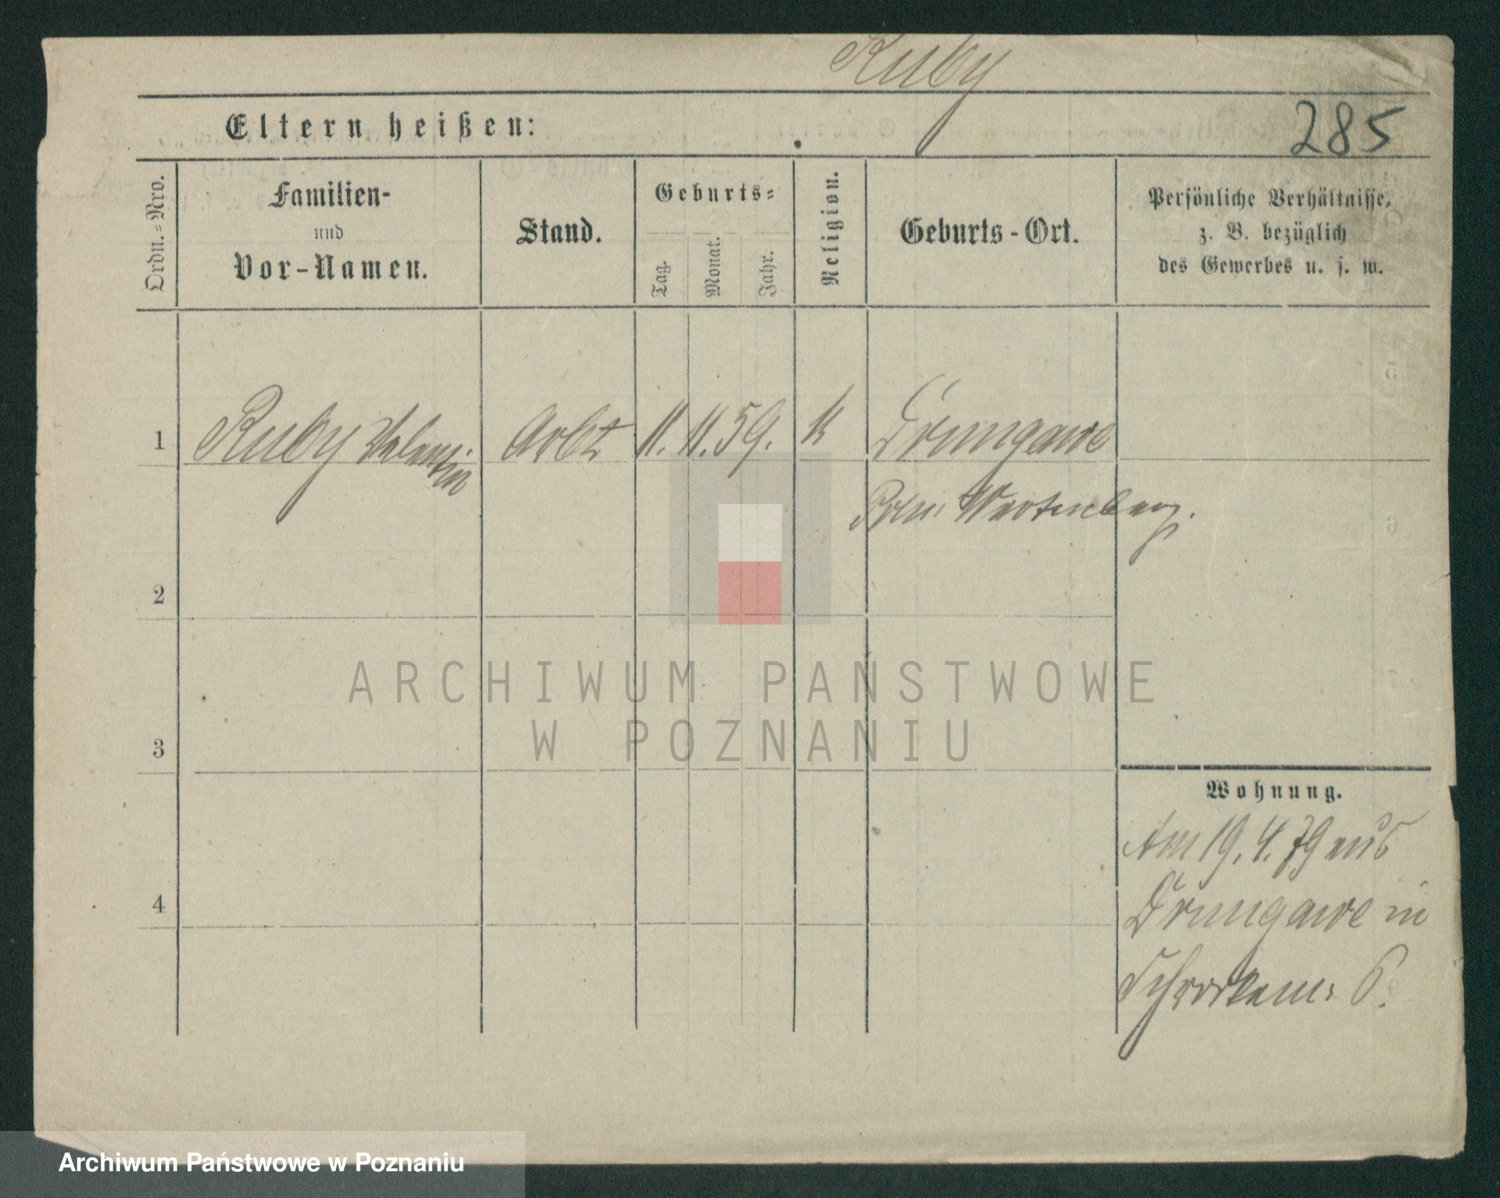 Ruby
285
Eltern heißen:
Ordn.-Nro.
Familien-
und
Vor-Namen.
Stand.
Geburts-
Tag.
Monat.
Jahr.
Religion.
Geburts-Ort.
Persönliche Verhältnisse,
z. B. bezüglich
des Gewerbes u. s. w.
1
Ruby Valentin
Arbt
11. 11. 59.
k
Drungawe
Poln: Wartenberg.
2
3
4
Wohnung.
Am 19. 4. 79 aus
Drungawe in
6.
ARCHIWUM PAŃSTWOWE
W POZNANIU
Archiwum Państwowe w Poznaniu